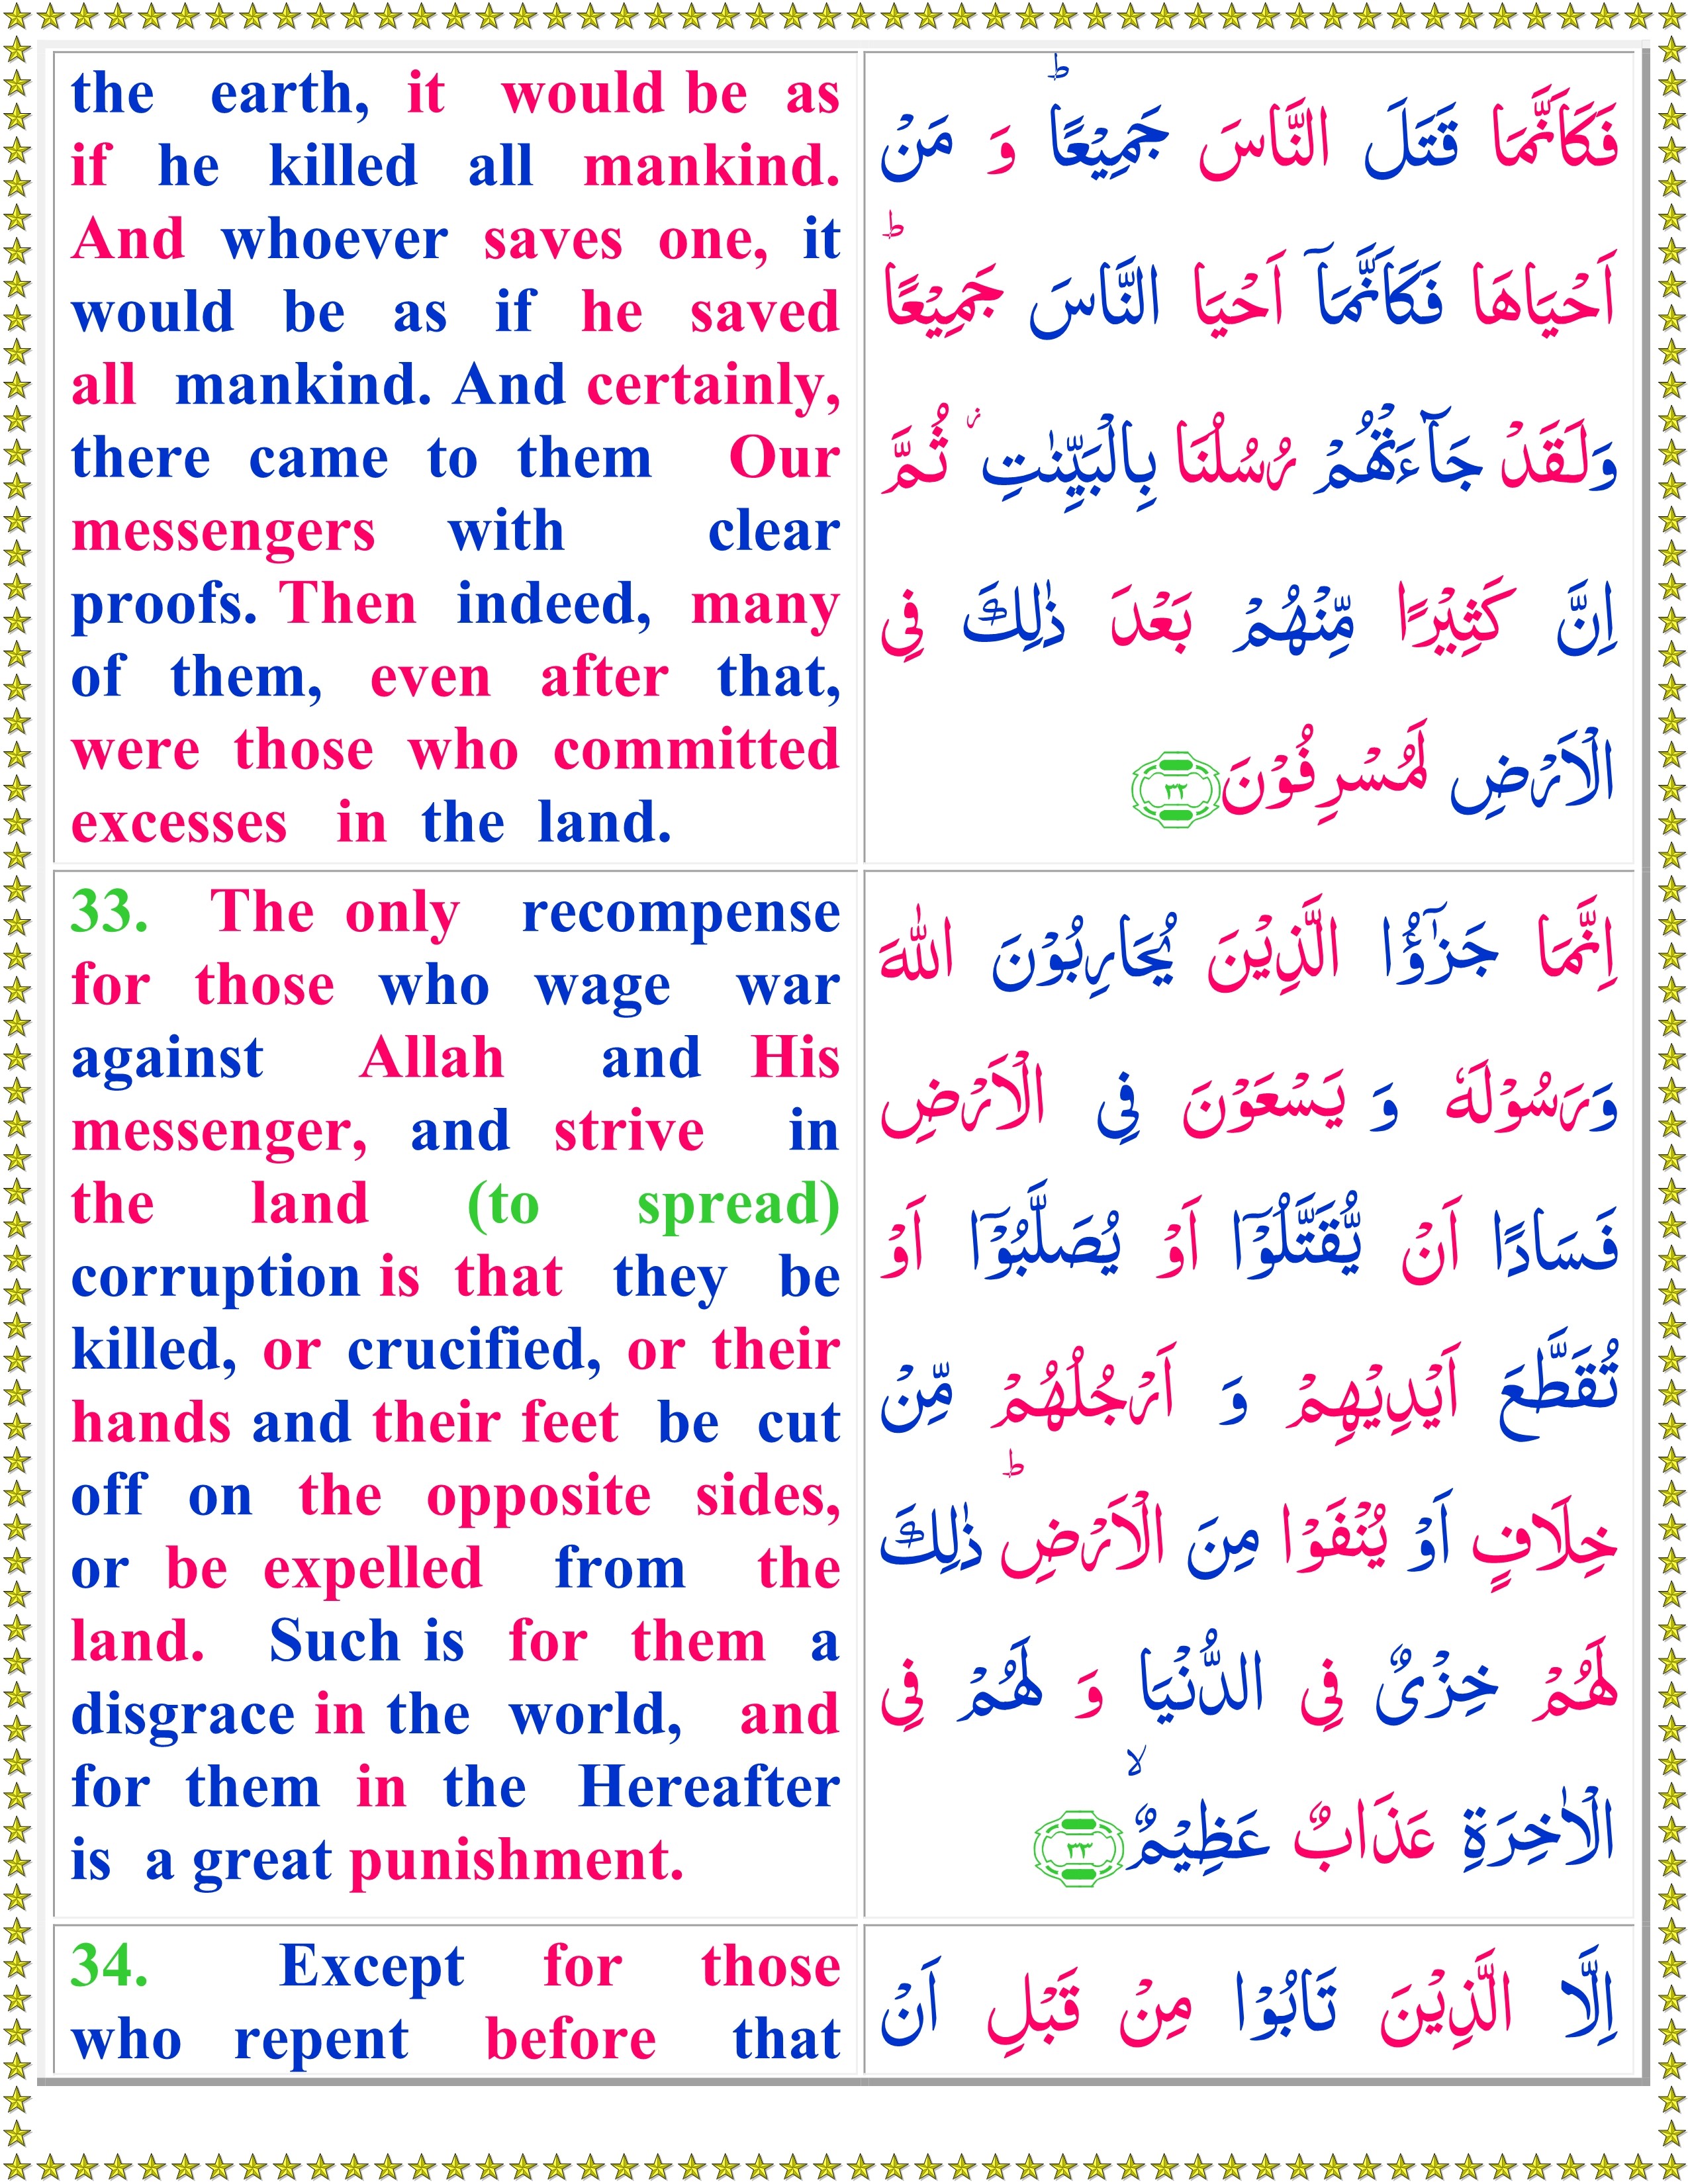 the earth, it would be as
if he killed all mankind.
And whoever saves one, it
would be as if he saved
all mankind. And certainly,
there came to them Our
messengers with clear
proofs. Then indeed, many
of them, even after that,
were those who committed
excesses in the land.
فَكَاَنَّمَا قَتَلَ النَّاسَ جَمِيْعًا ؕ وَ مَنْ
اَحْيَاهَا فَكَاَنَّمَاۤ اَحْيَا النَّاسَ جَمِيْعًا ؕ
وَلَقَدْ جَآءَتْهُمْ رُسُلُنَا بِالْبَيِّنٰتِ ؗ ثُمَّ
اِنَّ كَثِيْرًا مِّنْهُمْ بَعْدَ ذٰلِكَ فِى
الْاَرْضِ لَمُسْرِفُوْنَ ٣٢
33. The only recompense
for those who wage war
against Allah and His
messenger, and strive in
the land (to spread)
corruption is that they be
killed, or crucified, or their
hands and their feet be cut
off on the opposite sides,
or be expelled from the
land. Such is for them a
disgrace in the world, and
for them in the Hereafter
is a great punishment.
اِنَّمَا جَزٰٓؤُا الَّذِيْنَ يُحَارِبُوْنَ اللّٰهَ
وَرَسُوْلَهٗ وَ يَسْعَوْنَ فِى الْاَرْضِ
فَسَادًا اَنْ يُّقَتَّلُوْۤا اَوْ يُصَلَّبُوْۤا اَوْ
تُقَطَّعَ اَيْدِيْهِمْ وَ اَرْجُلُهُمْ مِّنْ
خِلَافٍ اَوْ يُنْفَوْا مِنَ الْاَرْضِ ؕ ذٰلِكَ
لَهُمْ خِزْىٌ فِى الدُّنْيَا وَ لَهُمْ فِى
الْاٰخِرَةِ عَذَابٌ عَظِيْمٌ ۙ ٣٣
34. Except for those
who repent before that
اِلَّا الَّذِيْنَ تَابُوْا مِنْ قَبْلِ اَنْ